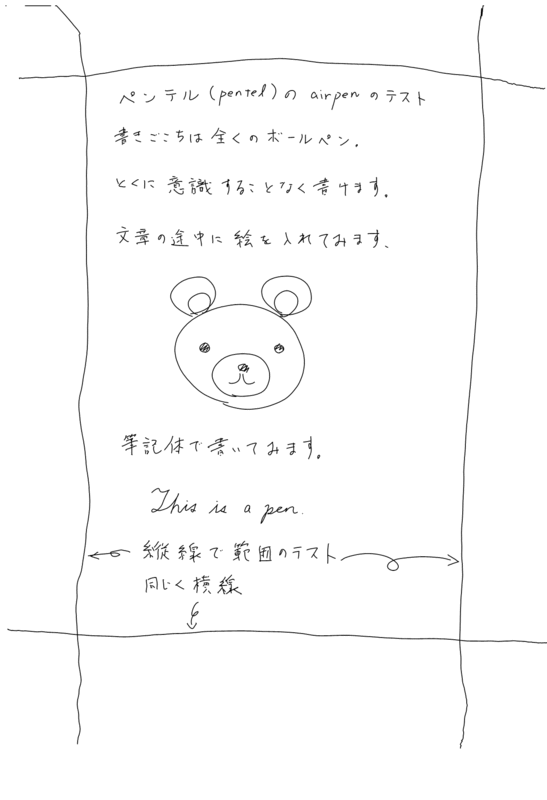 ペンテル(pentel)の airpenのテスト
書きごこちは全くのボールペン。
とくに意識することなく書けます。
文章の途中に絵を入れてみます、
筆記体で書いてみます。
This is a pen.
縦線で範囲のテスト
同じく横線